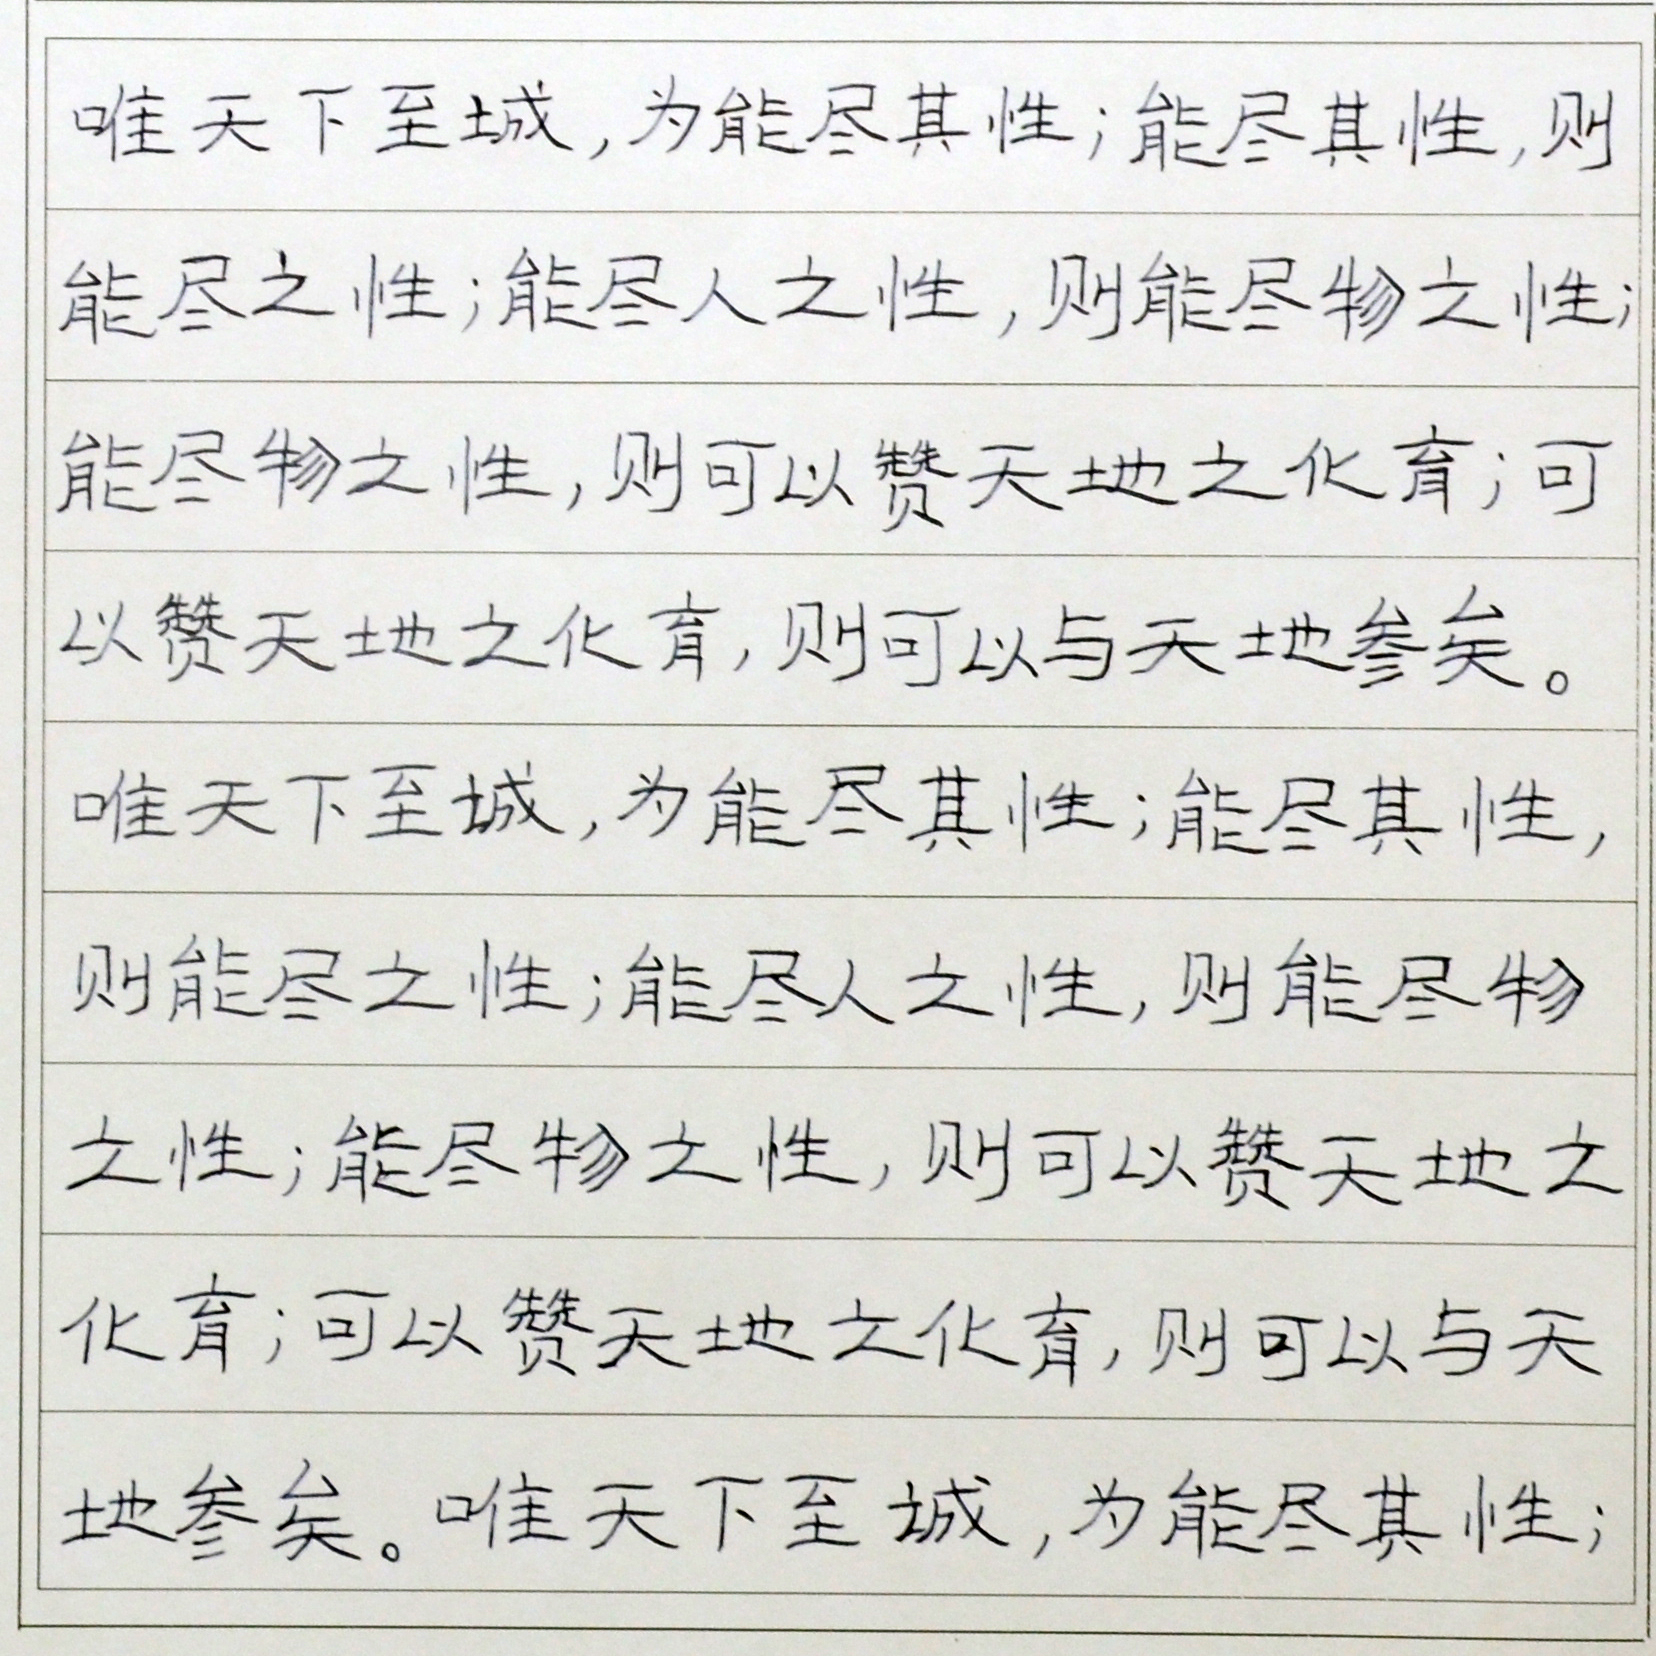 唯天下至城,为能尽其性;能尽其性,则
能尽之性;能尽人之性,则能尽物之性;
能尽物之性,则可以赞天地之化育;可
以赞天地之化育,则可以与天地参矣。
唯天下至城,为能尽其性;能尽其性,
则能尽之性;能尽人之性,则能尽物
之性;能尽物之性,则可以赞天地之
化育;可以赞天地之化育,则可以与天
地参矣。唯天下至诚,为能尽其性;